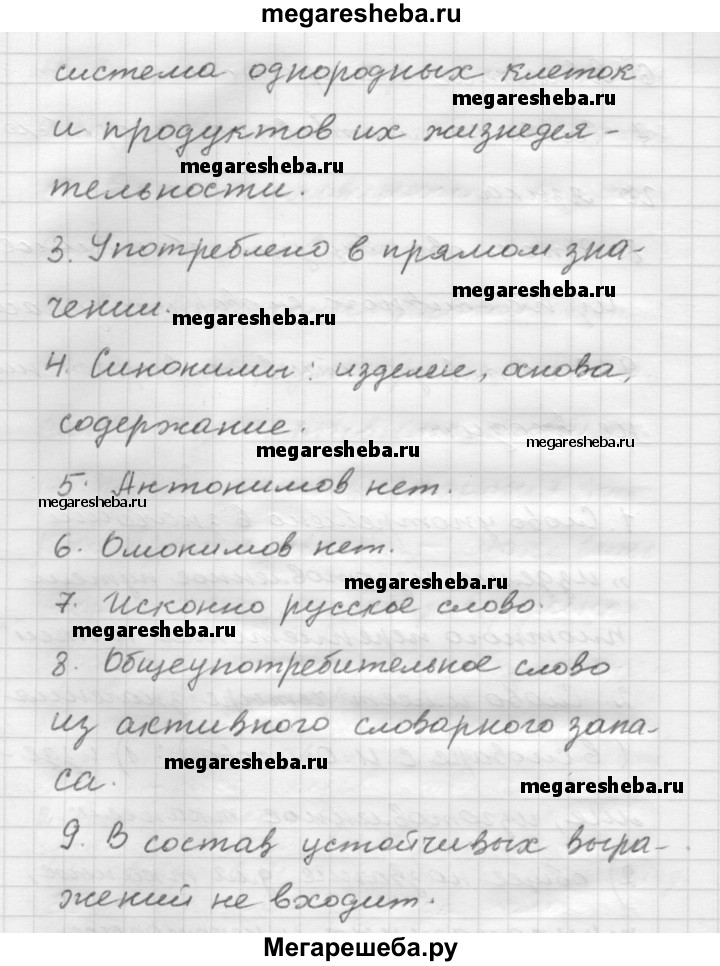 megaresheba.ru
система однородных клеток
megaresheba.ru
и продуктов их жизнедея-
megaresheba.ru
тельности.
3. Употреблено в прямом зна-
megaresheba.ru
чении.
megaresheba.ru
4. Синонимы: изделие, основа,
содержание.
megaresheba.ru
megaresheba.ru
5. Антонимов нет.
megaresheba.ru
6. Омонимов нет.
megaresheba.ru
7. Исконно русское слово.
megaresheba.ru
8. Общеупотребительное слово
из активного словарного запа-
megaresheba.ru
са.
megaresheba.ru
9. В состав устойчивых выра-
жений не входит.
Мегарешеба.ру